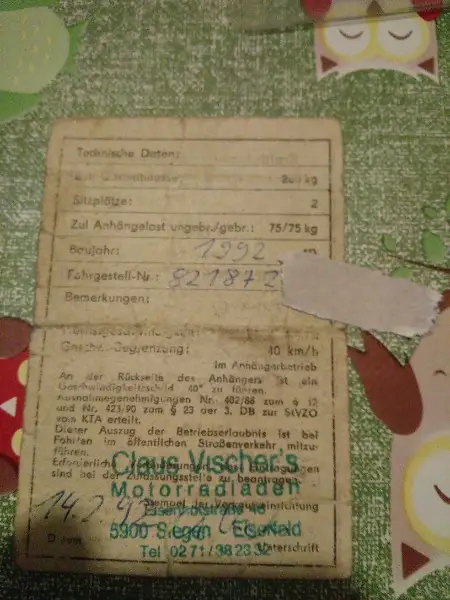 Technische Daten:
260 kg
Sitzplätze: 2
Zul Anhängelast ungebr./gebr.: 75/75 kg
Baujahr: 1992
Fahrgestell-Nr.: 821872
Bemerkungen:
Geschw.-Begrenzung: 40 km/h
im Anhängerbetrieb
An der Rückseite des Anhängers ist ein
Geschwindigkeitsschild „40" zu führen.
Ausnahmegenehmigungen Nr. 402/88 zum § 12
und Nr. 423/90 zum § 23 der 3. DB zur StVZO
vom KTA erteilt.
Dieser Auszug der Betriebserlaubnis ist bei
Fahrten im öffentlichen Straßenverkehr mitzu-
führen.
Erforderliche Eintragungen
sind bei der Zulassungsstelle zu beantragen.
Claus Vischer's
Motorradladen
Stempel der
14.2.92
5900 Siegen Eiserfeld
Tel 0271/382332
Datum Unterschrift